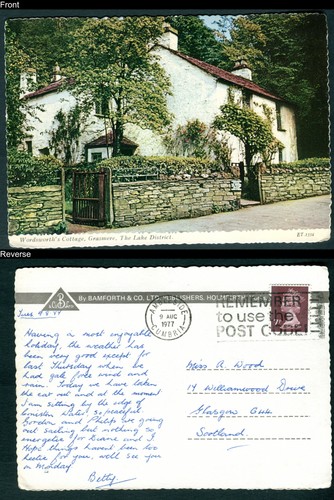 Front
Wordsworth's Cottage, Grasmere, The Lake District.
Reverse
By BAMFORTH & CO. LTD. PUBLISHERS. HOLMFIRTH
AMBLESIDE
9 AUG
1977
CUMBRIA
REMEMBER
to use the
POST CODE
Tues
Having a most enjoyable
holiday, the weather has
been very good except for
last Thursday when we
had gale force winds and
rain. Today we have taken
the car out and at the moment
I am sitting by the edge of
Coniston Water, so peaceful
Gordon and are going
out sailing but nothing so
energetic for and I
Hope things havent been too
hectic for you, will see you
on Monday
Betty
Miss A. Wood
17 Williamwood Drive
Glasgow G44
Scotland